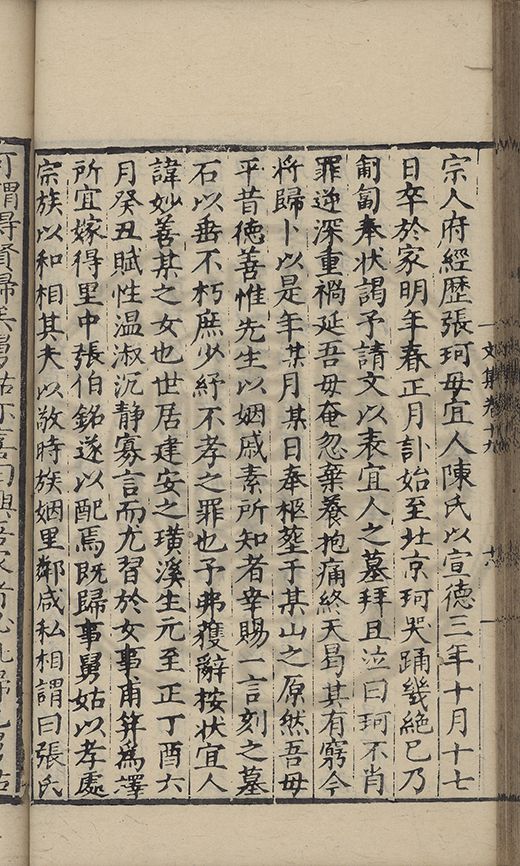 宗人府經歷張珂母宜人陳氏以宣德三年十月十七
日卒於家明年春正月訃始至北京珂哭踊幾絶已乃
匍匐奉狀謁予請文以表宜人之墓拜且泣曰珂不肖
罪逆深重禍延吾母奄忽棄養抱痛終天曷其有窮今
將歸卜以是年某月某日奉柩塟于某山之原然吾母
平昔徳善惟先生以姻戚素所知者幸賜一言刻之墓
石以垂不朽庶少紓不孝之罪也予弗獲辭桉状宜人
諱妙善某之女也世居建安之璜溪生元至正丁酉六
月癸丑賦性温淑沉静寡言而尤習於女事甫筓為擇
所宜嫁得里中張伯銘遂以配焉既歸事舅姑以孝處
宗族以和相其夫以敬時族姻里鄰咸私相謂曰張氏
文集卷十九